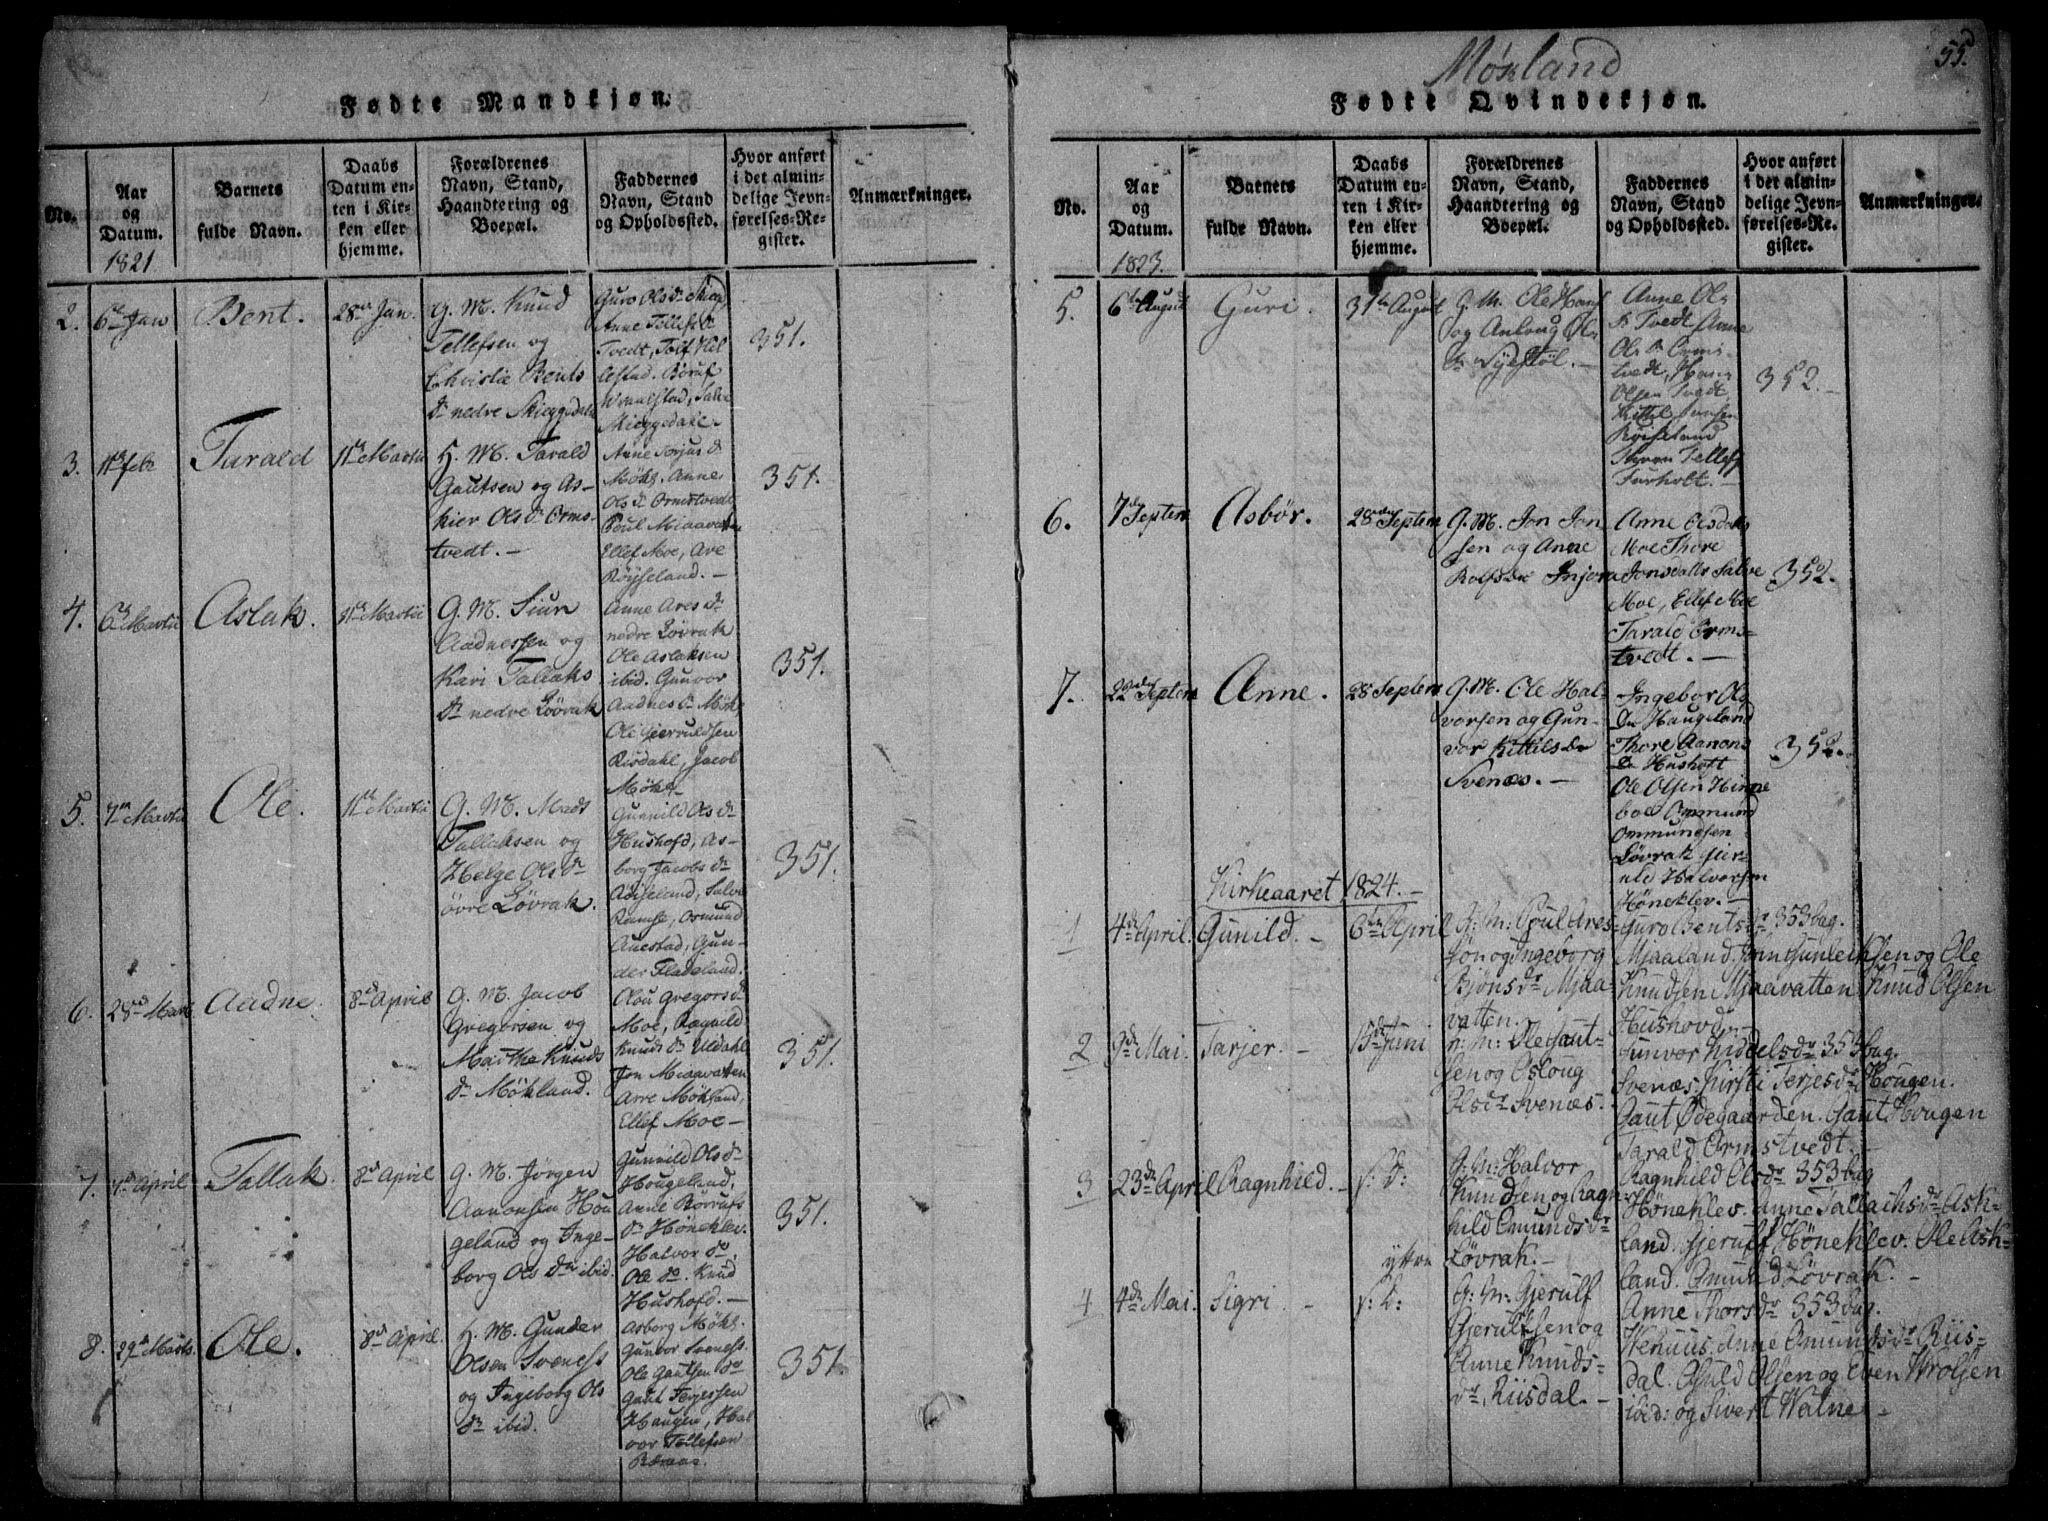 Fødte Mandkjøn.
No.
Aar
og
Datum.
1821
Barnets
fulde Navn.
Daabs
Datum en-
ten i Kir-
ken eller
hjemme.
Forældrenes
Navn, Stand,
Haandtering og
Boepæl.
Faddernes
Navn, Stand
og Opholdssted.
Hvor anført
i det almin-
delige Jevn-
førelses-Re-
gister.
Anmærkninger.
2.
6te Jan
Bent.
28de Jan.
G. M. Knud
Tellefsen og
Christie Bents
Dr nedre Skieggedal
Guro Olsdr
Anne Tellefsdr
Tvedt,
351.
3.
11te Febr
Tarald
11te Martii
H. M. Tarald
Gautsen og As-
kier Ols Dr Orms-
tvedt. —
Anne Torjus dr
Møkl. Anne
Ols dr Ormstvedt
Poul Miaavatten
Ellef Moe, Are
Röyseland. —
351.
4.
6te Martii
Aslak.
11te Martii
G. M. Siun
Aadnessen og
Kari Tallaks
dr nedre Lövrak
Anne Ares dr
nedre Lövrak
Ole Aslaksen
ibid. Gunvor
Aadnes dr Møkl
Ole Gierruldsen
Risdahl, Jacob
Møkl.
351.
5.
7de Martii
Ole.
11te Martii
G. M. Mads
Tallaksen og
Helge Ols dr
övre Lövrak.
Gunnild As dr
Hushofd, As-
borg Jacobs dr
Röiseland, Salve
Ramse, Osmund
Auestad, Gun-
der Fladeland.
351.
6.
28de Mart.
Aadne.
8de April
G. M. Jacob
Gregersen og
Marthe Knuds
dr Møkland.
Olou Gregors dr
Moe, Ragnild
Knuds dr Uldahl
Jon Miaavatten
Arre Møkland,
Ellef Moe —
351.
7.
4de April
Tallak.
8de April
G. M. Jörgen
Aanonsen Hou
geland og Inge-
borg Ols dr ibid.
Gunnild Ols dr
Hougeland,
Anne Rörrufs
dr Hönekley.
Halvor do,
Ole do. Knud
Hushofd. —
351.
8.
29de Marts.
Ole.
8de April.
H. M. Gunder
Olsen Sveness
og Ingeborg Ols
dr ibid.
Asborg Møkl.
Gunvor Sveness.
Ole Gautsen do
Gaut Terjessen
Haugen, Hal
vor Tellefsen
351.
Møkland
55.
Fødte Qvindekjøn.
No.
Aar
og
Datum.
1823.
Barnets
fulde Navn.
Daabs
Datum en-
ten i Kir-
ken eller
hjemme.
Forældrenes
Navn, Stand,
Haandtering og
Boepæl.
Faddernes
Navn, Stand
og Opholdssted.
Hvor anført
i det almin-
delige Jevn-
førelses-Re-
gister.
Anmærkninger.
5.
6te August
Guri.
31te August
G. M. Ole Hans
og Anlaug Ols
Dr
Anne Ols
Dr Tvedt Anne
Ols Dr Orms-
tvedt, Hans
Olsen Tvedt
Kittil Jensen
Röiseland
Tellefs
Furholt. —
352.
6.
7de Septem
Asbör.
28de Septem
G. M. Jon Jon
sen og Anne
Rolfsdr
Anne
Moe Thore
Salve
Moe, Ellef Moe
Tarald Orms-
tvedt. —
352.
7.
22de Septem
Anne.
28 Septem
G. M. Ole Hal-
vorsen og Gun-
vor Kittilsdr
Svenæs. —
Ingebor Ols
Dr Haugeland
Thore Aanons
Dr Hushoft
Ole Olsen Hinne
boe Ommund
Ommundsen
Lövrak Gier-
uld Halvorsen
Hönekley. —
352.
Kirkeaaret 1824. —
1
4de April.
Gunild. —
6te April
G: M: Poul Ares-
sön og Ingeborg
Bjönsdr Mjaa-
vatten. —
Guro Bentsdr 353 bag.
Mjaaland. Jonn Gunleiksen og Ole
Knudsen Mjaavatten Knud Olsen
Hushovd. —
2
9de Mai.
Tarjer. —
15de Juni
n: M: Ole Gaut-
sen og Osloug
Olsdr Svenæs.
Gunvor Kiddelsdr 353 bag.
Svenæs. Kirsti Terjesdr Hougen.
Gaut Ødegaarden. Gaut Hougen
Tarald Ormstvedt. —
3
23de April
Ragnhild. —
s: D:
G: M: Halvor
Knudsen og Ragn-
hild Omundsdr
yttre Lövrak. —
Ragnhild Olsdr 353 bag
Hönekley. Anne Tallachsdr Ask-
land. Gjerulf Hönekley. Ole Ask-
land. Omund Lövrak. —
4
4de Mai.
Sigri. —
s: D:
G: M: Gjerulf
Gjerulfsen og
Anne Knuds-
dr, Riisdal. —
Anne Thorsdr 353 bag.
Wehuus. Anne Omundsdr Riis-
dal. Osuld Olsen og Even Wrolsen
ibid: og Sivert Watne. —